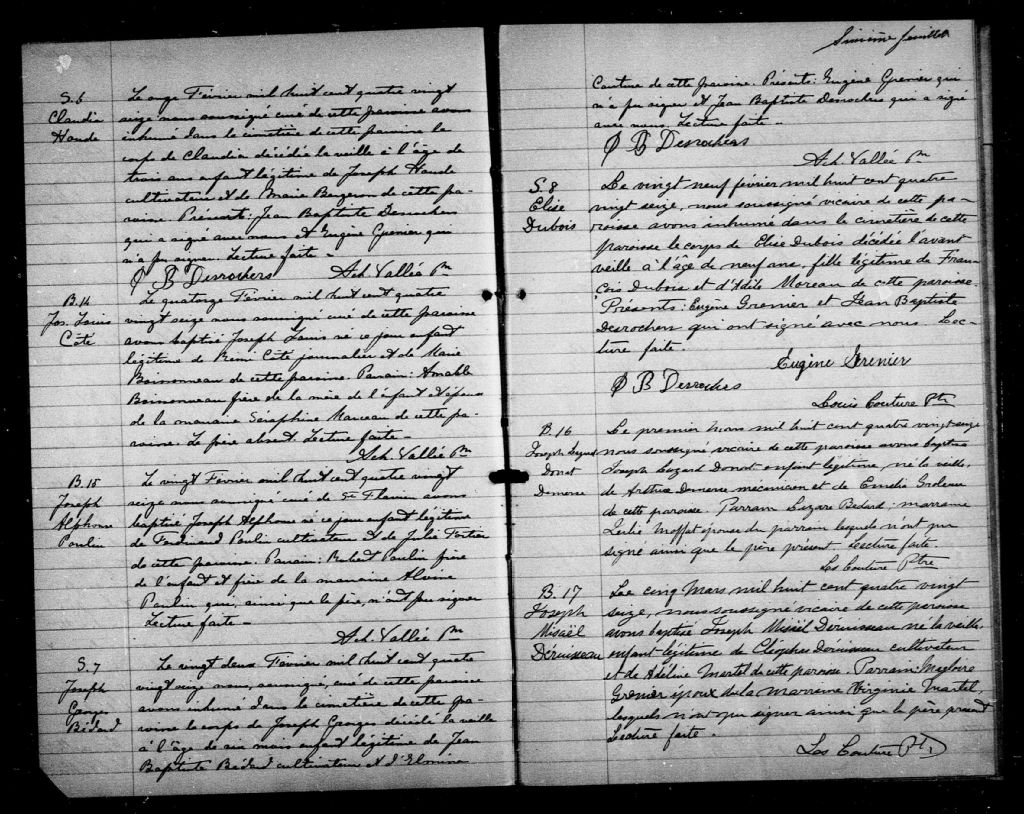 S.6
Claudia
Houde
Le onze Février mil huit cent quatre vingt
seize nous soussigné curé de cette paroisse avons
inhumé dans le cimetière de cette paroisse le
corps de Claudia décédée la veille à l'âge de
trois ans enfant légitime de Joseph Houde
cultivateur et de Marie Bergeron de cette pa-
roisse. Présents: Jean Baptiste Desrochers
qui a signé avec nous et Eugène Grenier qui
n'a pu signer. Lecture faite -
J B Desrochers Ach. Vallée Ptre
B.14
Jos. Louis
Côté
Le quatorze Février mil huit cent quatre
vingt seize nous soussigné curé de cette paroisse
avons baptisé Joseph Louis né ce jour enfant
légitime de Rémi Côté journalier et de Marie
Boissonneau de cette paroisse. Parrain: Amable
Boissonneau frère de la mère de l'enfant et époux
de la marraine Séraphine Marceau de cette pa-
roisse. Le père absent. Lecture faite -
Ach. Vallée Ptre
B.15
Joseph
Alphonse
Paulin
Le vingt Février mil huit cent quatre vingt
seize nous soussigné curé de St Flavien avons
baptisé Joseph Alphonse né ce jour enfant légitime
de Ferdinand Paulin cultivateur et de Julie Fortier
de cette paroisse. Parrain: Robert Paulin frère
de l'enfant et frère de la marraine Alvine
Paulin qui, ainsi que le père, n'ont pu signer
Lecture faite -
Ach. Vallée Ptre
S.7
Joseph
Georges
Bédard
Le vingt deux Février mil huit cent quatre
vingt seize nous, soussigné, curé de cette paroisse
avons inhumé dans le cimetière de cette pa-
roisse le corps de Joseph Georges décédé la veille
à l'âge de six mois enfant légitime de Jean
Baptiste Bédard cultivateur et d'Elmina
Sixième feuillet
Couture de cette paroisse. Présents: Eugène Grenier qui
n'a pu signer et Jean Baptiste Desrochers qui a signé
avec nous. Lecture faite -
J B Desrochers
Ach. Vallée Ptre
S.8
Elise
Dubois
Le vingt neuf février mil huit cent quatre
vingt seize, nous soussigné vicaire de cette pa-
roisse avons inhumé dans le cimetière de cette
paroisse le corps de Elise Dubois décédée l'avant
veille à l'âge de neuf ans, fille légitime de Fran-
cois Dubois et d'Adèle Moreau de cette paroisse.
Présents: Eugène Grenier et Jean Baptiste
Desrochers qui ont signé avec nous. Lec-
ture faite.
Eugène Grenier
J B Desrochers
Louis Couture Ptre
B.16
Joseph Lazard
Donat
Demers
Le premier Mars mil huit cent quatre vingt seize
nous soussigné vicaire de cette paroisse avons baptisé
Joseph Lazard Donat enfant légitime, né la veille,
de Arthur Demers mécanicien et de Emélie
de cette paroisse. Parrain Lazare Bédard: marraine
Moffat épouse du parrain lesquels n'ont pu
signé ainsi que le père présent. Lecture faite.
Ls Couture Ptre
B. 17
Joseph
Misaël
Deruisseau
Le cinq Mars mil huit cent quatre vingt
seize, nous soussigné vicaire de cette paroisse
avons baptisé Joseph Misaël Deruisseau né la veille,
enfant légitime de Cléophas Deruisseau cultivateur
et de Adéline Martel de cette paroisse. Parrain: Magloire
Grenier époux de la marraine Virginie Martel,
lesquels n'ont pu signer ainsi que le père présent
Lecture faite.
Ls Couture Ptr